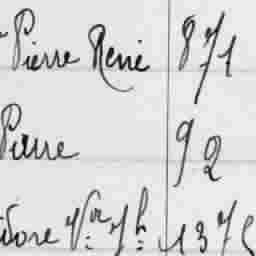 Pierre René 871
Pierre 92
idore Vor Jh 1375